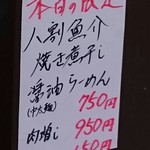 本日の限定
八割魚介
焼き煮干し
醤油らーめん
(中太麺) 750円
肉増し 950円
150円